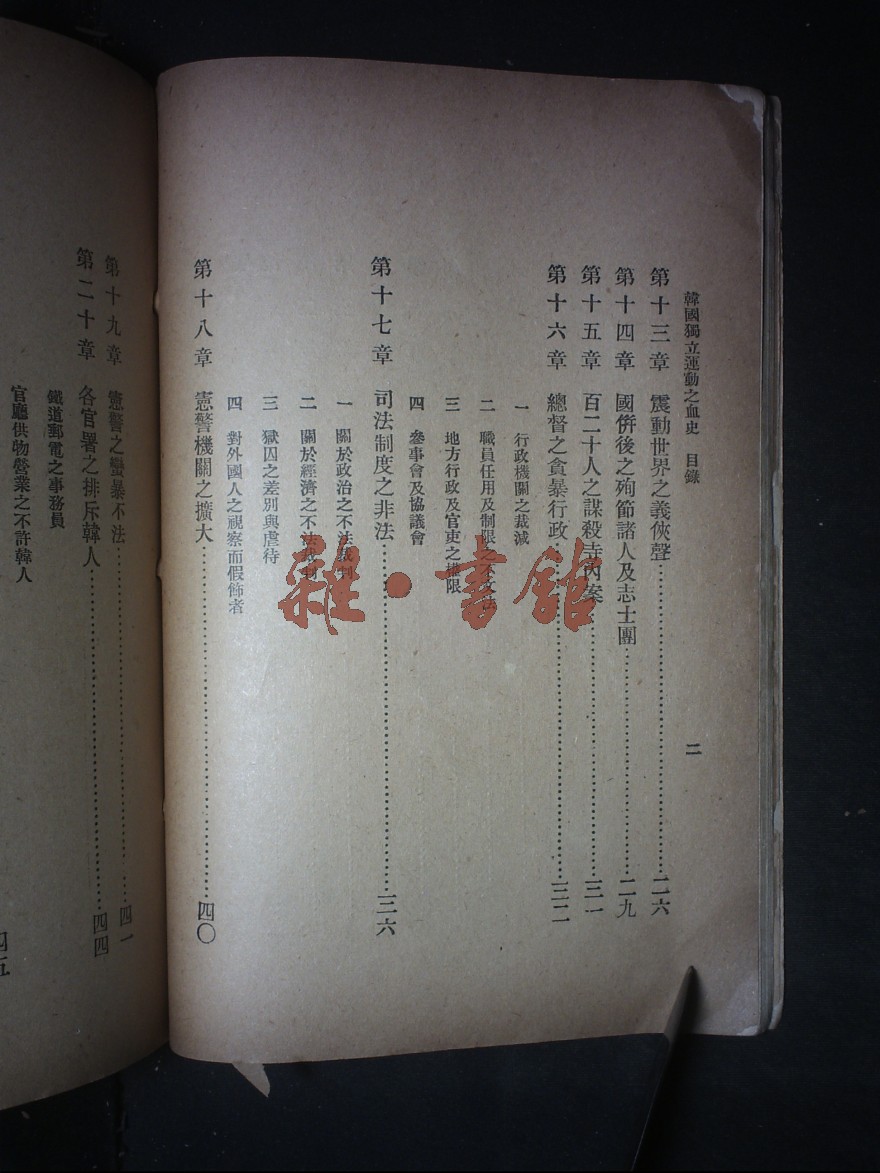 韓國獨立運動之血史 目錄 二
第十三章 震動世界之義俠聲……二六
第十四章 國併後之殉節諸人及志士團……二九
第十五章 百二十人之謀殺寺內案……三一
第十六章 總督之貪暴行政……三二
一 行政機關之裁減
二 職員任用及制限之不文法
三 地方行政及官吏之權限
四 叅事會及協議會
第十七章 司法制度之非法……三六
一 關於政治之不法裁判
二 關於經濟之不法裁判
三 獄囚之差別與虐待
四 對外國人之視察而假飾者
第十八章 憲警機關之擴大……四〇
第十九章 憲警之蠻暴不法……四一
第二十章 各官署之排斥韓人……四四
鐵道郵電之事務員
官廳供物營業之不許韓人
四五
雜·書館